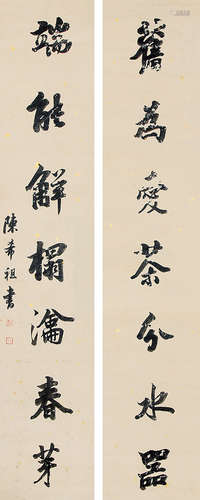 舊為愛茶分水器
端能解榻瀹春芽
陳希祖書